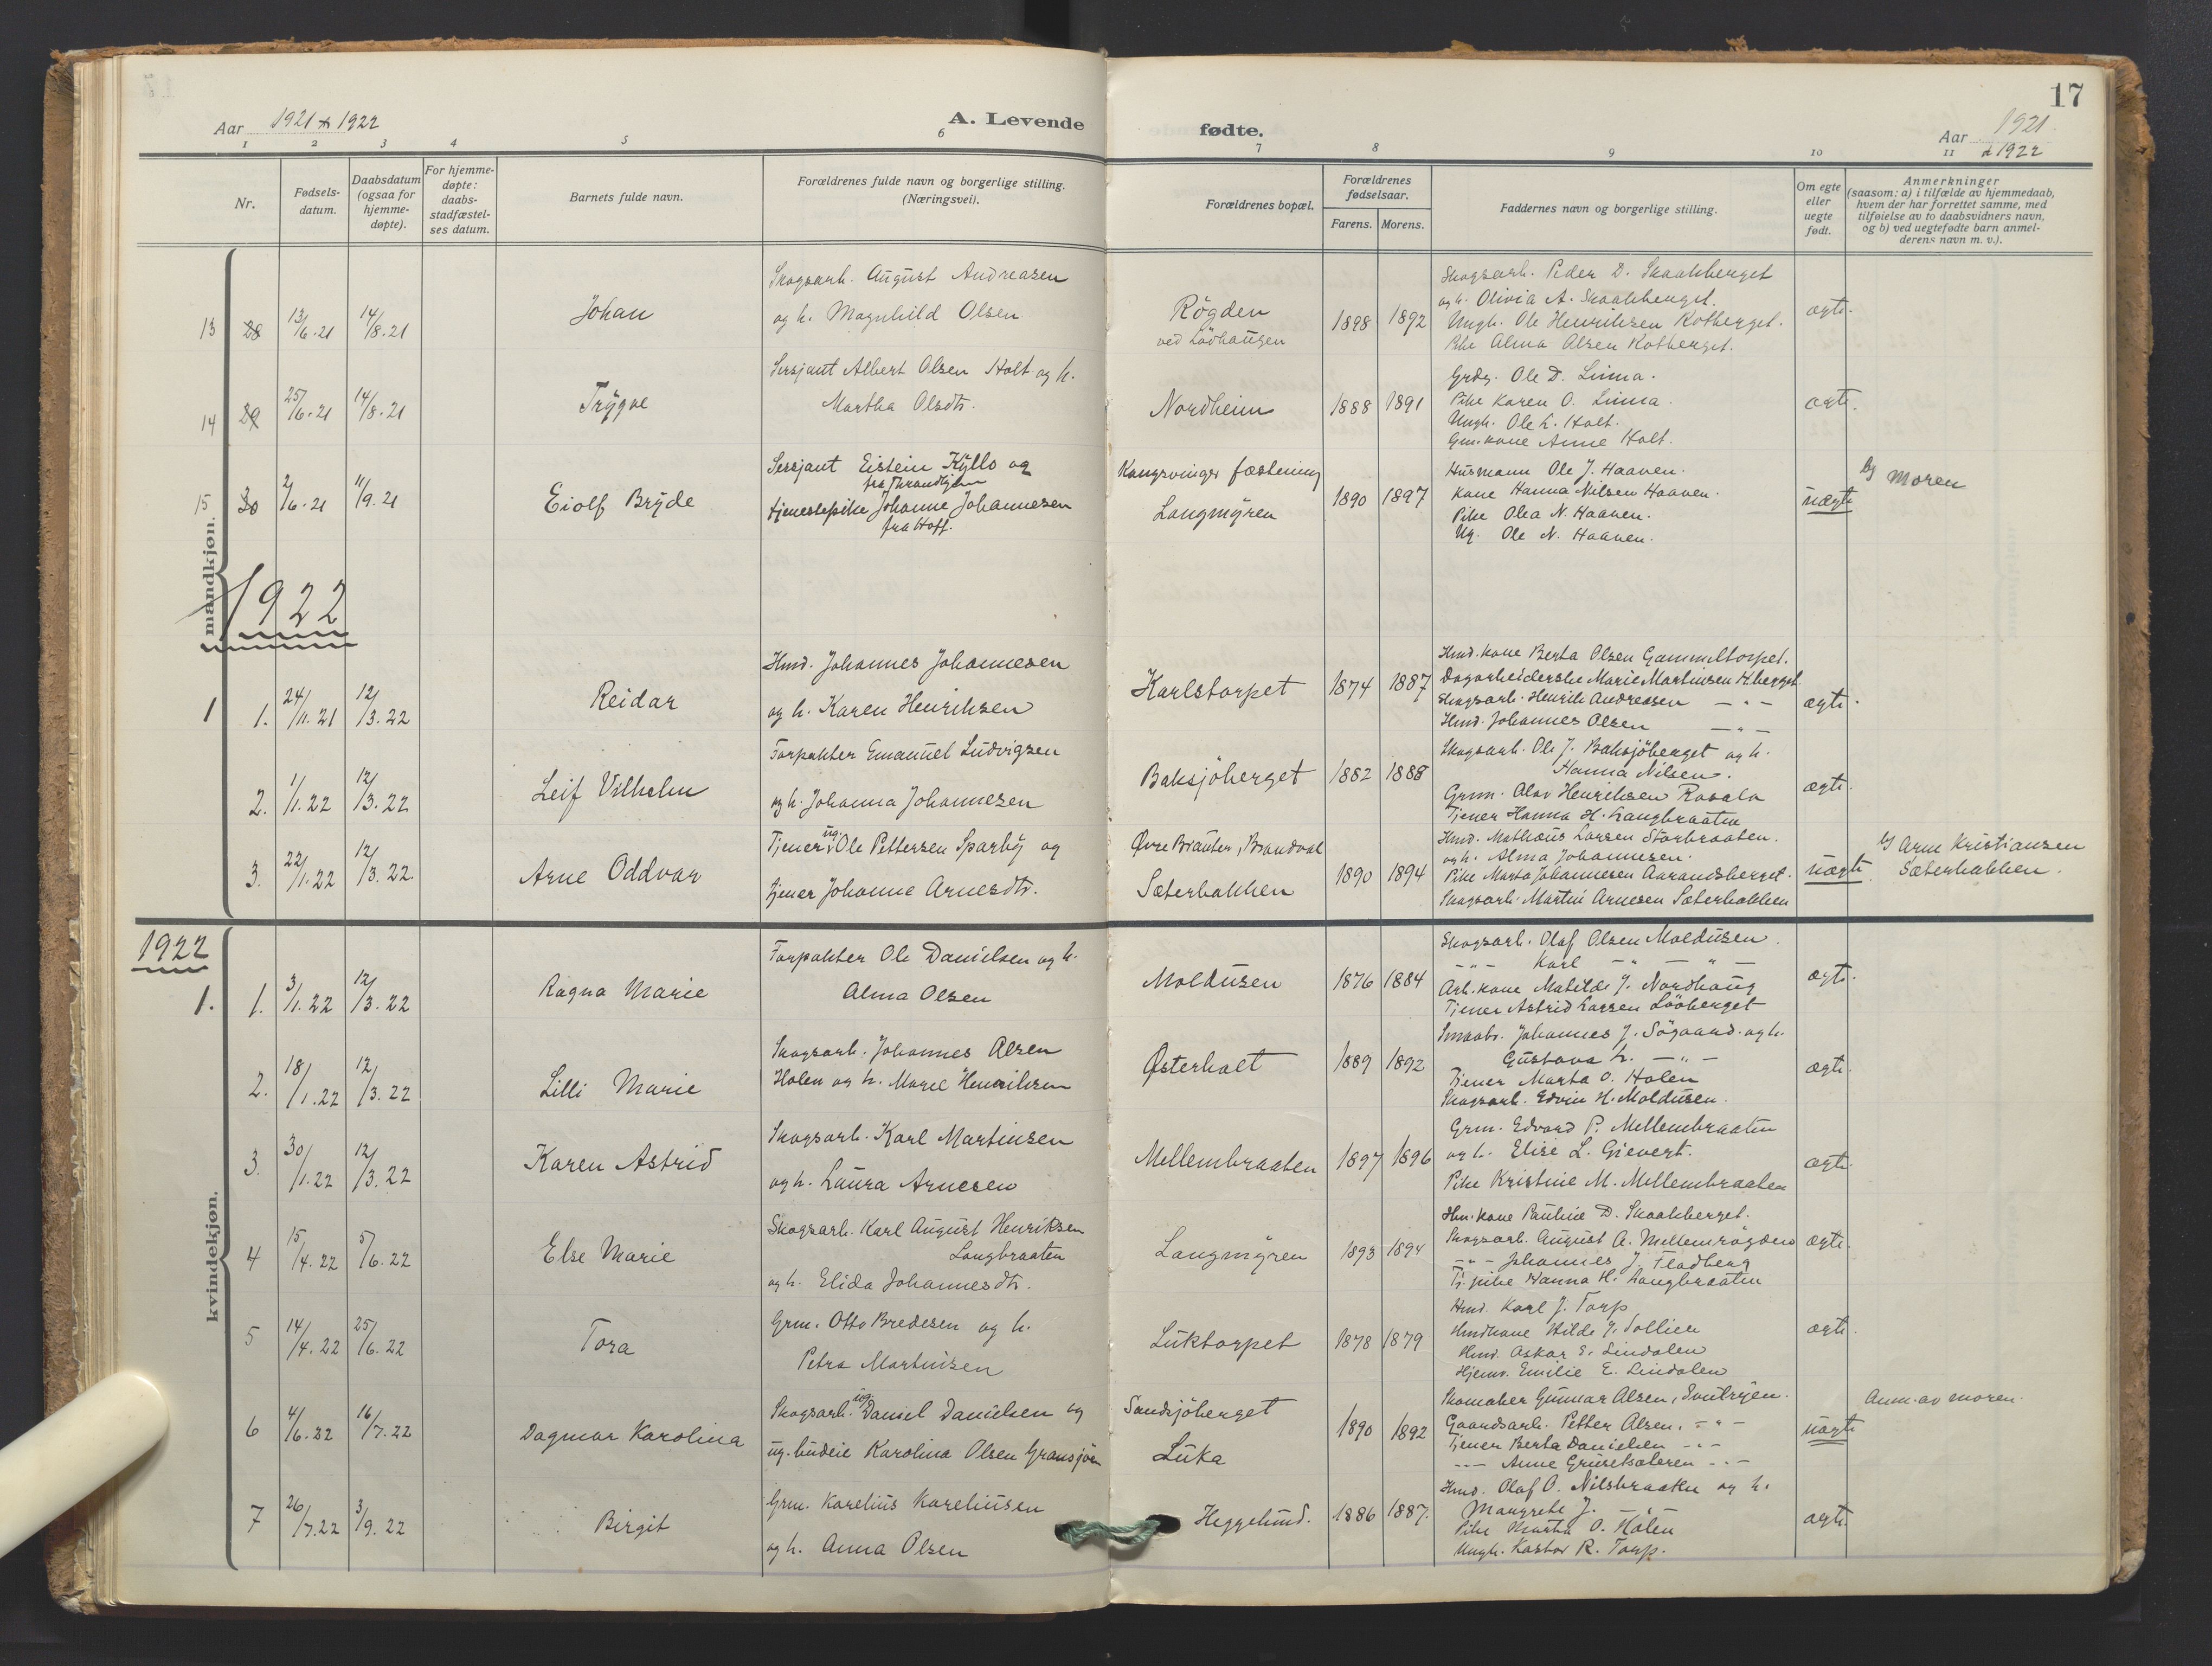 17
Aar 1921 & 1922
A. Levende fødte.
Aar 1921 & 1922
1 2 3 4 5 6 7 8 9 10 11
Nr.
Fødselsdatum.
Daabsdatum (ogsaa for hjemmedøpte).
For hjemmedøpte: daabsstadfæstelses datum.
Barnets fulde navn.
Forældrenes fulde navn og borgerlige stilling. (Næringsvei).
Forældrenes bopæl.
Forældrenes fødselsaar.
Farens. Morens.
Faddernes navn og borgerlige stilling.
Om egte eller uegte født.
Anmerkninger (saasom: a) i tilfælde av hjemmedaab, hvem der har forrettet samme, med tilføielse av to daabsvidners navn, og b) ved uegtefødte barn anmelderens navn m. v.).
mandkjøn.
13 28 13/6.21 14/8.21 Johan
Skogsarb. August Andreasen
og h. Magnhild Olsen
Rögden
ved Lövhaugen
1898 1892
Skogsarb. Peder D. Skaakberget
og h. Olivia A. Skaakberget.
Ungk. Ole Henriksen Kotberget.
Pike Alma Olsen Kotberget.
ægte.
14 29 25/6.21 14/8.21 Trygve
Sersjant Albert Olsen Holt og h.
Martha Olsdtr.
Nordheim
1888 1891
Grdg. Ole D. Linna.
Pike Karen O. Linna.
Ungk. Ole L. Holt.
Gm. kone Anne Holt.
ægte.
15 30 2/6.21 11/9.21 Eiolf Bryde
Sersjant Eistein Kyllo og
fra Thrandhjem
tjenestepike Johanne Johannesen
fra Hoff.
Kongsvinger fæstning
Langmyren
1890 1897
Husmann Ole J. Haaven.
Kone Hanna Nilsen Haaven.
Pike Olea N. Haaven.
Ug. Ole N. Haaven.
uægte
b) Moren
1922
1 1. 24/11.21 12/3.22 Reidar
Hmd. Johannes Johannesen
og h. Karen Henriksen
Karlstorpet
1874 1887
Hmd. kone Berta Olsen Gammeltorpet.
Dagarbeiderske Marie Martinsen H.berget
Skogsarb. Henrik Andreasen — " —
Hmd. Johannes Olsen — " —
ægte.
2. 1/1.22 12/3.22 Leif Vilhelm
Forpakter Emanuel Ludvigsen
og h. Johanna Johannesen
Baksjöberget
1882 1888
Skogsarb. Ole J. Baksjöberget og h.
Hanna Nilsen.
Grm. Olav Henriksen Rasala
Tjener Hanna H. Langbraaten
ægte.
3. 22/1.22 12/3.22 Arne Oddvar
Tjener ug. Ole Pettersen Sparby og
tjener Johanne Arnesdtr.
Øvre Brauten, Brandval
Sæterbakken
1890 1894
Hmd. Mathæus Larsen Storbraaten.
og h. Alma Johannesen.
Pike Marta Johannesen Aarandsberget.
Skogsarb. Martin Arnesen Sæterbakken
uægte
b) Arne Kristiansen
Sæterbakken.
1922
kvindekjøn.
1. 1. 3/1.22 12/3.22 Ragna Marie
Forpakter Ole Danielsen og h.
Alma Olsen
Moldusen
1876 1884
Skogsarb. Olaf Olsen Moldusen.
— " — Karl — " — " —
Arb. kone Matilde J. Nordhaug
Tjener Astrid Larsen Lövberget
ægte.
2. 18/1.22 12/3.22 Lilli Marie
Skogsarb. Johannes Olsen
Holen og h. Marie Henriksen
Østerholt
1889 1892
Smaabr. Johannes J. Sögaard. og h.
Gustava L. — " —
Tjener Marta O. Holen
Skogsarb. Edvin H. Moldusen.
ægte.
3. 30/1.22 12/3.22 Karen Astrid
Skogsarb. Karl Martinsen
og h. Laura Arnesen
Mellembraaten
1897 1896
Grm. Edvard P. Mellembraaten
og h. Elise L. Gievert.
Pike Kristine M. Mellembraaten
ægte.
4 15/4.22 5/6.22 Else Marie
Skogsarb. Karl August Henriksen
Langbraaten
og h. Elida Johannesdtr.
Langmyren
1893 1894
Hm. kone Pauline D. Skaakberget.
Skogsarb. August A. Mellemrögden
— " — Johannes J. Fladberg
Tj. pike Hanna H. Langbraaten
ægte.
5 14/4.22 25/6.22 Tora
Grm. Otto Bredesen og h.
Petra Martinsen
Luktorpet
1878 1879
Hmd. Karl J. Torp
Hmdkone Hilde J. Sollien
Hmd. Askar E. Lindalen
Hjemv. Emilie E. Lindalen
ægte.
6 4/6.22 16/7.22 Dagmar Karolina
Skogsarb. ug. Daniel Danielsen og
ug. budeie Karolina Olsen Gransjöen
Sandsjöberget
Luka
1890 1892
Skomaker Gunnar Olsen,
Gaardsarb. Petter Olsen, — " —
Tjener Berta Danielsen — " —
— " — Anne Grusetsæteren — " —
uægte
Anm. av moren.
7 26/7.22 3/9.22 Birgit
Grm. Karelius Kareliusen
og h. Anna Olsen
Heggelund.
1886 1887.
Hmd. Olaf O. Nilsbraaten og h.
Margrete J. — " —
Pike Marta O. Holen
Ungk. Kastor R. Torp.
ægte.